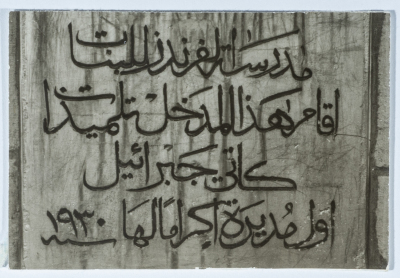 مدرسة الفرندز للبنات
اقام هذا المدخل تلميذات
كاتي جبرائيل
اول مديرة اكراما لها
سنة ١٩٣٠